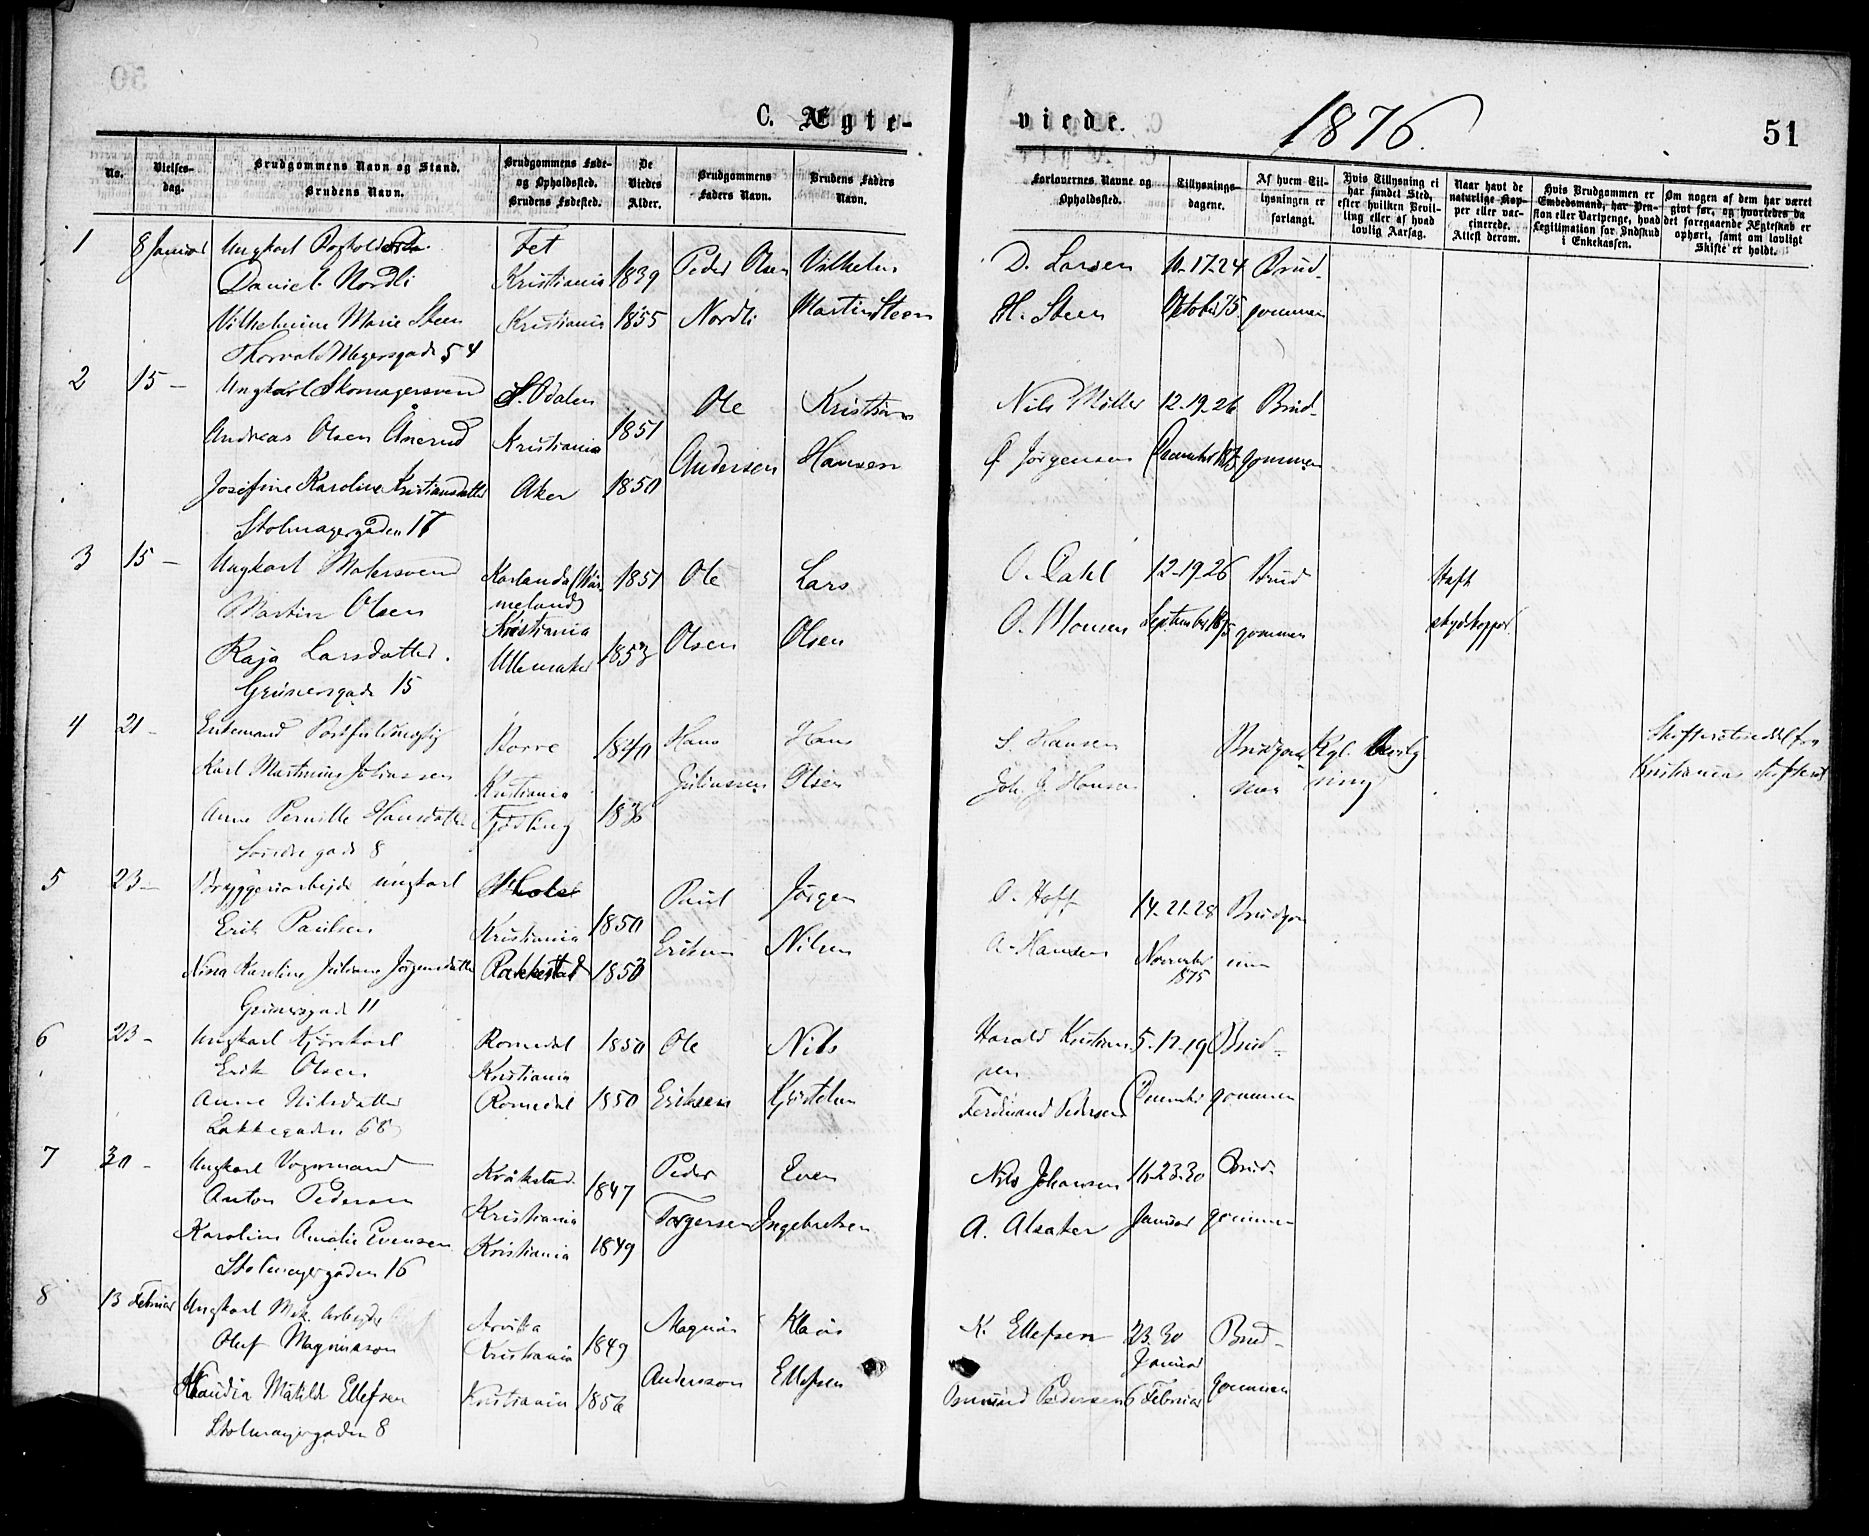 C. Ægte-
viede.
1876.
51
No.
Vielses-
dag.
Brudgommens Navn og Stand.
Brudens Navn.
Brudgommens Føde-
og Opholdssted.
Brudens Fødested.
De
Viedes
Alder.
Brudgommens
Faders Navn.
Brudens Faders
Navn.
Forlovernes Navne og
Opholdssted.
Tillysnings-
dagene.
Af hvem Til-
lysningen er
forlangt.
Hvis Tillysning ei
har fundet Sted,
efter hvilken Bevil-
ling eller af hvad
lovlig Aarsag.
Naar havt de
naturlige Kop-
per eller vac-
cinerede.
Attest derom.
Hvis Brudgommen er
Embedsmand, har Pen-
sion eller Vartpenge, hvad
Legitimation for Indskud
i Enkekassen.
Om nogen af dem har været
givt før, og hvorledes da
det foregaaende Ægteskab er
ophørt, samt om lovligt
Skifte er holdt.
1 8 Januar Ungkarl
Daniel Nordli
Vilhelmine Marie Steen
Thorvald Meyersgade 54
Fet
Kristiania
Kristiania
1839
1855
Peder Olsen
Nordli
Vilhelm
Martin Steen
D. Larsen
H. Steen
10-17-24
Oktober 75.
Brud-
gommen
2 15 – Ungkarl Skomagersvend
Andreas Olsen Ånerud
Josefine Karoline Kristiansdatter
Stolmagergaden 17
S. Odalen
Kristiania
Aker
1851
1850
Ole
Andersen
Kristian
Hansen
Nils Møller
Jørgensen
12-19-26
December
Brud-
gommen
3 15 – Ungkarl Malersvend
Martin Olsen
Kaja Larsdatter.
Grünersgade 15
Karlanda (Wär-
meland)
Kristiania
Ullensaker
1851
1853
Ole
Olsen
Lars
Olsen
O. Dahl
O. Monsen
12-19-26
September 1875
Brud
gommen
Haft
skydskopper
4 21 – Enkemand Postfuldmægtig
Karl Martinius Johnssen
Anne Pernille Hansdatter
Søndregade 8
Kristiania
1836
Hans
Hans
Olsen
S. Hansen
Joh. J. Hansen
Brudgom-
men
Kgl. Bevilg-
ning
Skifteretsseddel fra
Kristianias Skifteret
5 23 – Bryggeriarbejder ungkarl
Erik Paulsen
Nina Karoline Juliane Jørgensdatter
Grünersgade 11
Kristiania
Rakkestad
1850
1853
Paul
Eriksen
Jørgen
Nilsen
O. Hoff
A. Hansen
14-21-28
November
1875
Brudgom
men
6 23 – Ungkarl Kjørekarl
Erik Olsen
Anne Nilsdatter
Lakkegaden 66
Romedal
Kristiania
Romedal
1850
1850
Ole
Eriksen
Nils
Kjøstelsen
Harald Kristian-
sen
Ferdinand Pedersen
5-12-19
December
Brud-
gommen
7 30 – Ungkarl Vognmand
Anton Pedersen
Karoline Amalie Evensen
Stolmagergaden 16
Kråkstad
Kristiania
Kristiania
1847
1849
Peder
Torgersen
Even
Ingebretsen
Nils Johansen
A. Alsaker
16-23-30
Januar
Brud-
gommen
8 13 Februar Ungkarl Mek. Arbejder
Oluf Magnusson
Klaudia Matilde Ellefsen
Stolmagergaden 8
Arvika
Kristiania
Kristiania
1849
1856
Magnus
Andersson
Klaus
Ellefsen
K. Ellefsen
Pedersen
23-30
Januar
6 Februar
Brud-
gommen